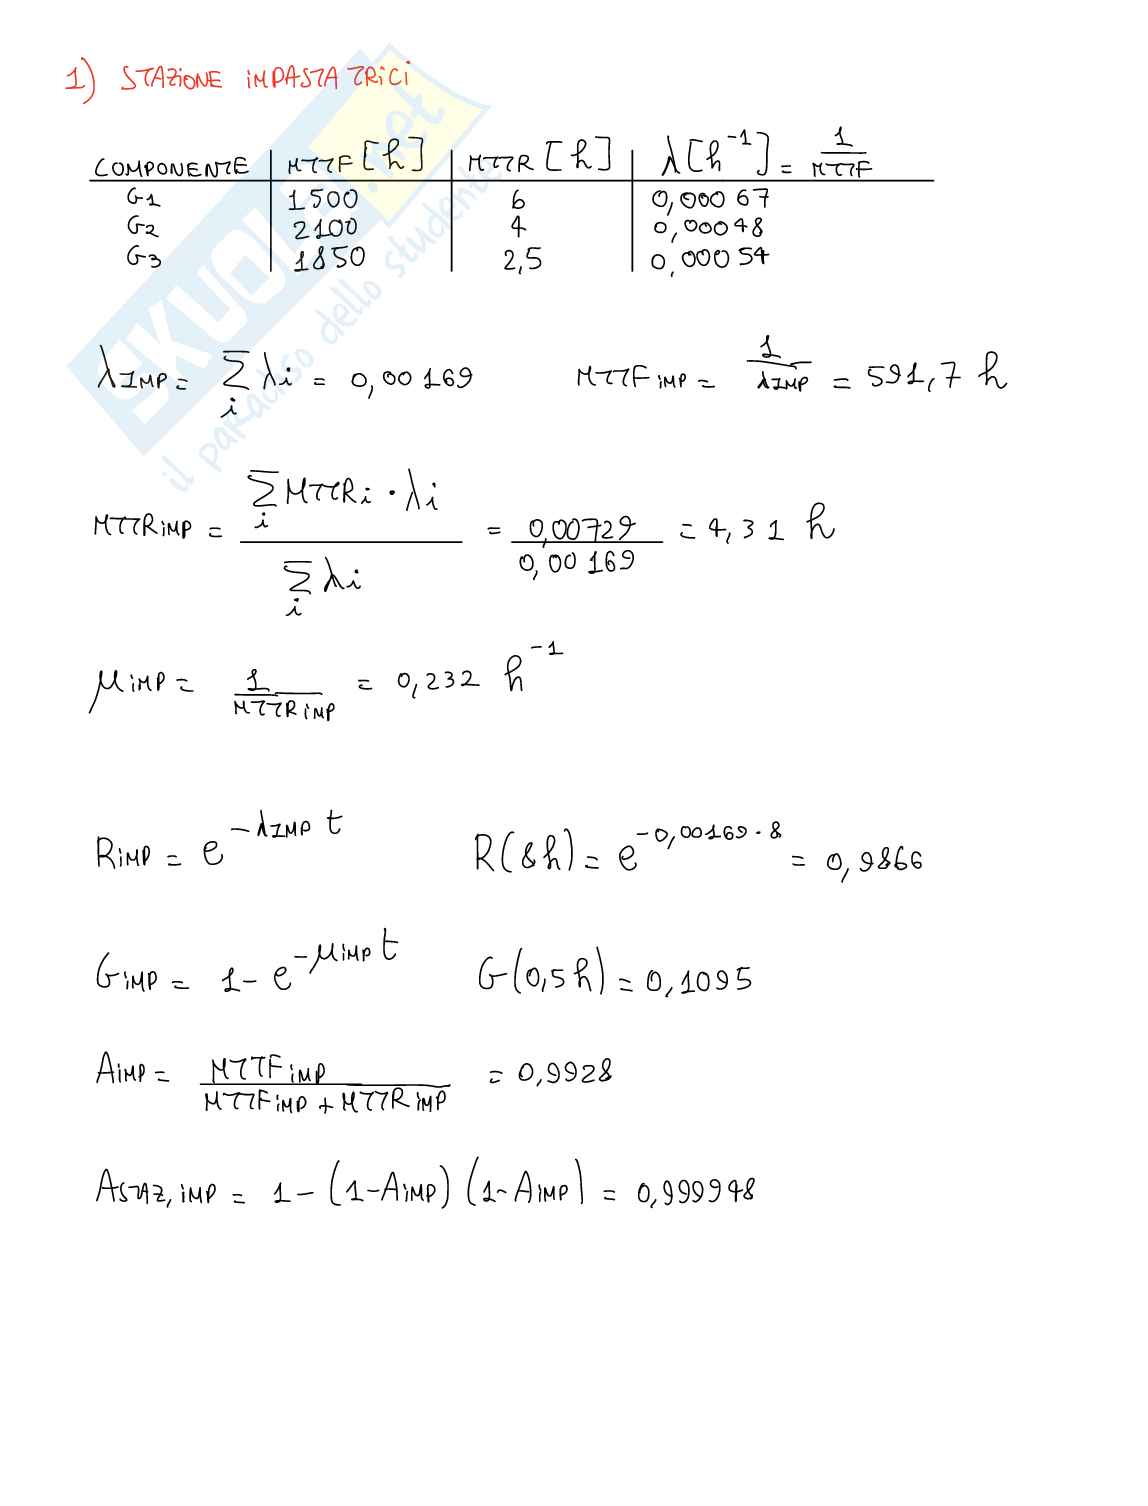 1) STAZIONE IMPASTATRICI
COMPONENTE MTTF [h] MTTR [h] λ[h⁻¹] = 1/MTTF
G1 1500 6 0,00067
G2 2100 4 0,00048
G3 1850 2,5 0,00054
λIMP = Σi λi = 0,00169 MTTFIMP = 1/λIMP = 591,7 h
MTTRIMP = Σi MTTRi · λi / Σi λi = 0,00729/0,00169 = 4,31 h
μIMP = 1/MTTRIMP = 0,232 h⁻¹
RIMP = e^(-λIMP t) R(8h) = e^(-0,00169·8) = 0,9866
GIMP = 1 - e^(-μIMP t) G(0,5h) = 0,1095
AIMP = MTTFIMP / (MTTFIMP + MTTRIMP) = 0,9928
ASTAZ,IMP = 1 - (1-AIMP)(1-AIMP) = 0,999948
SKUOLA.net
il paradiso dello studente